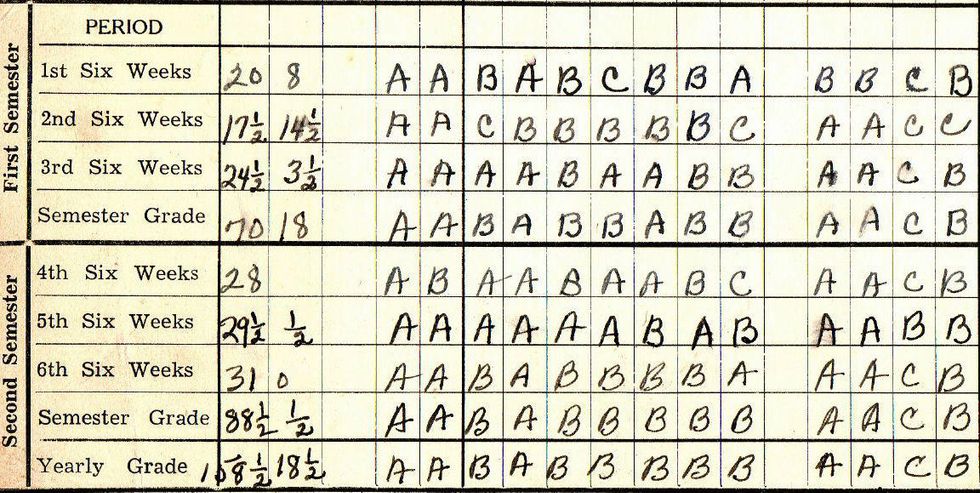 First Semester
PERIOD
1st Six Weeks 20 8 A A B A B C B B A B B C B
2nd Six Weeks 17½ 14½ A A C B B B B B C A A C C
3rd Six Weeks 24½ 3½ A A A A B A A B B A A C B
Semester Grade 70 18 A A B A B B A B B A A C B
Second Semester
4th Six Weeks 28 A B A A B A A B C A A C B
5th Six Weeks 29½ ½ A A A A A A B A B A A B B
6th Six Weeks 31 0 A A B A B B B B A A A C B
Semester Grade 88½ ½ A A B A B B B B B A A C B
Yearly Grade 158½ 18½ A A B A B B B B B A A C B